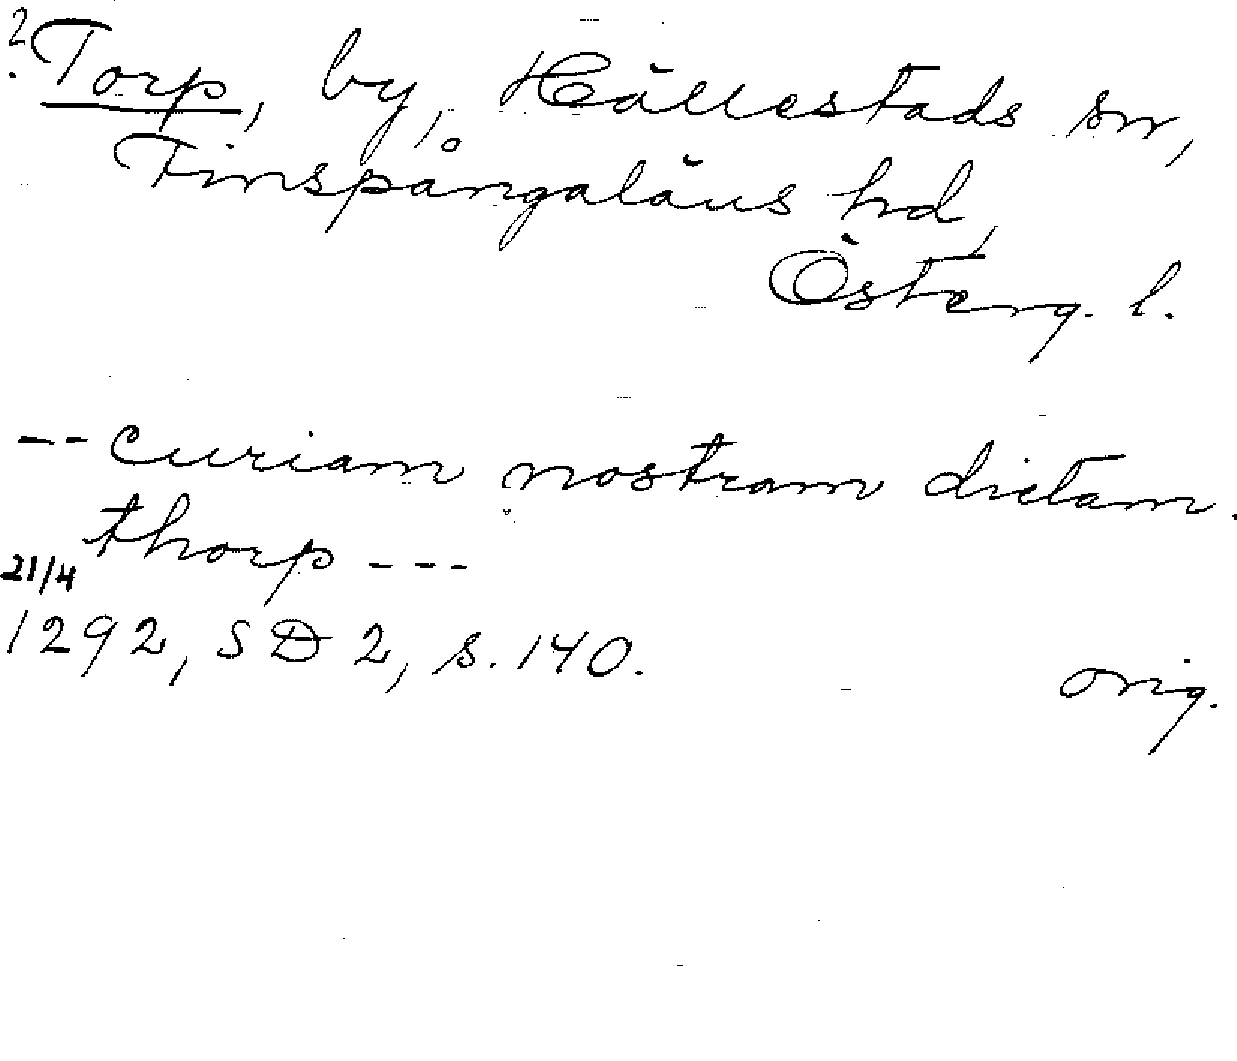 ? Torp, by, Hällestads sn,
Finspångaläns hd,
Österg. l.
-- curiam nostram dictam.
thorp ---
21/4
1292, SD 2, s. 140.
orig.